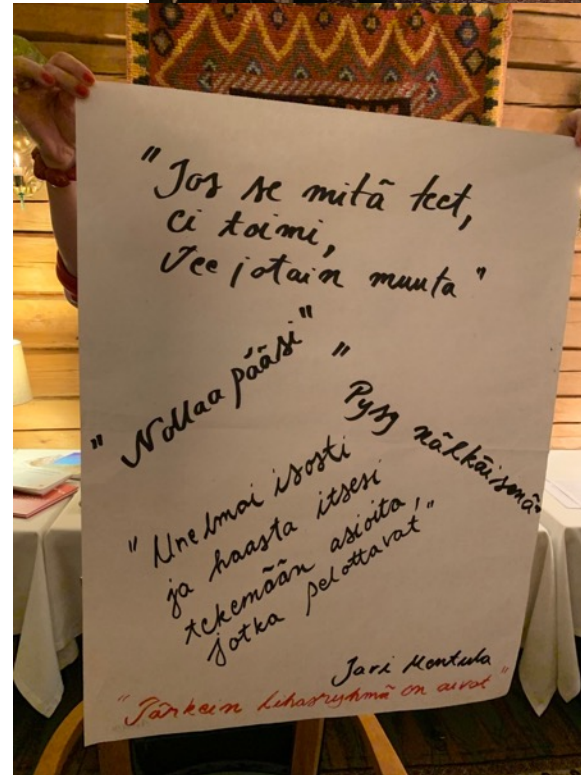 "Jos se mitä teet,
ei toimi,
Tee jotain muuta"
"Nollaa pääsi"
"Pysy nälkäisenä"
"Unelmoi isosti
ja haasta itsesi
tekemään asioita,
jotka pelottavat"
Jari Mentula
"Tärkein lihasryhmä on aivot"